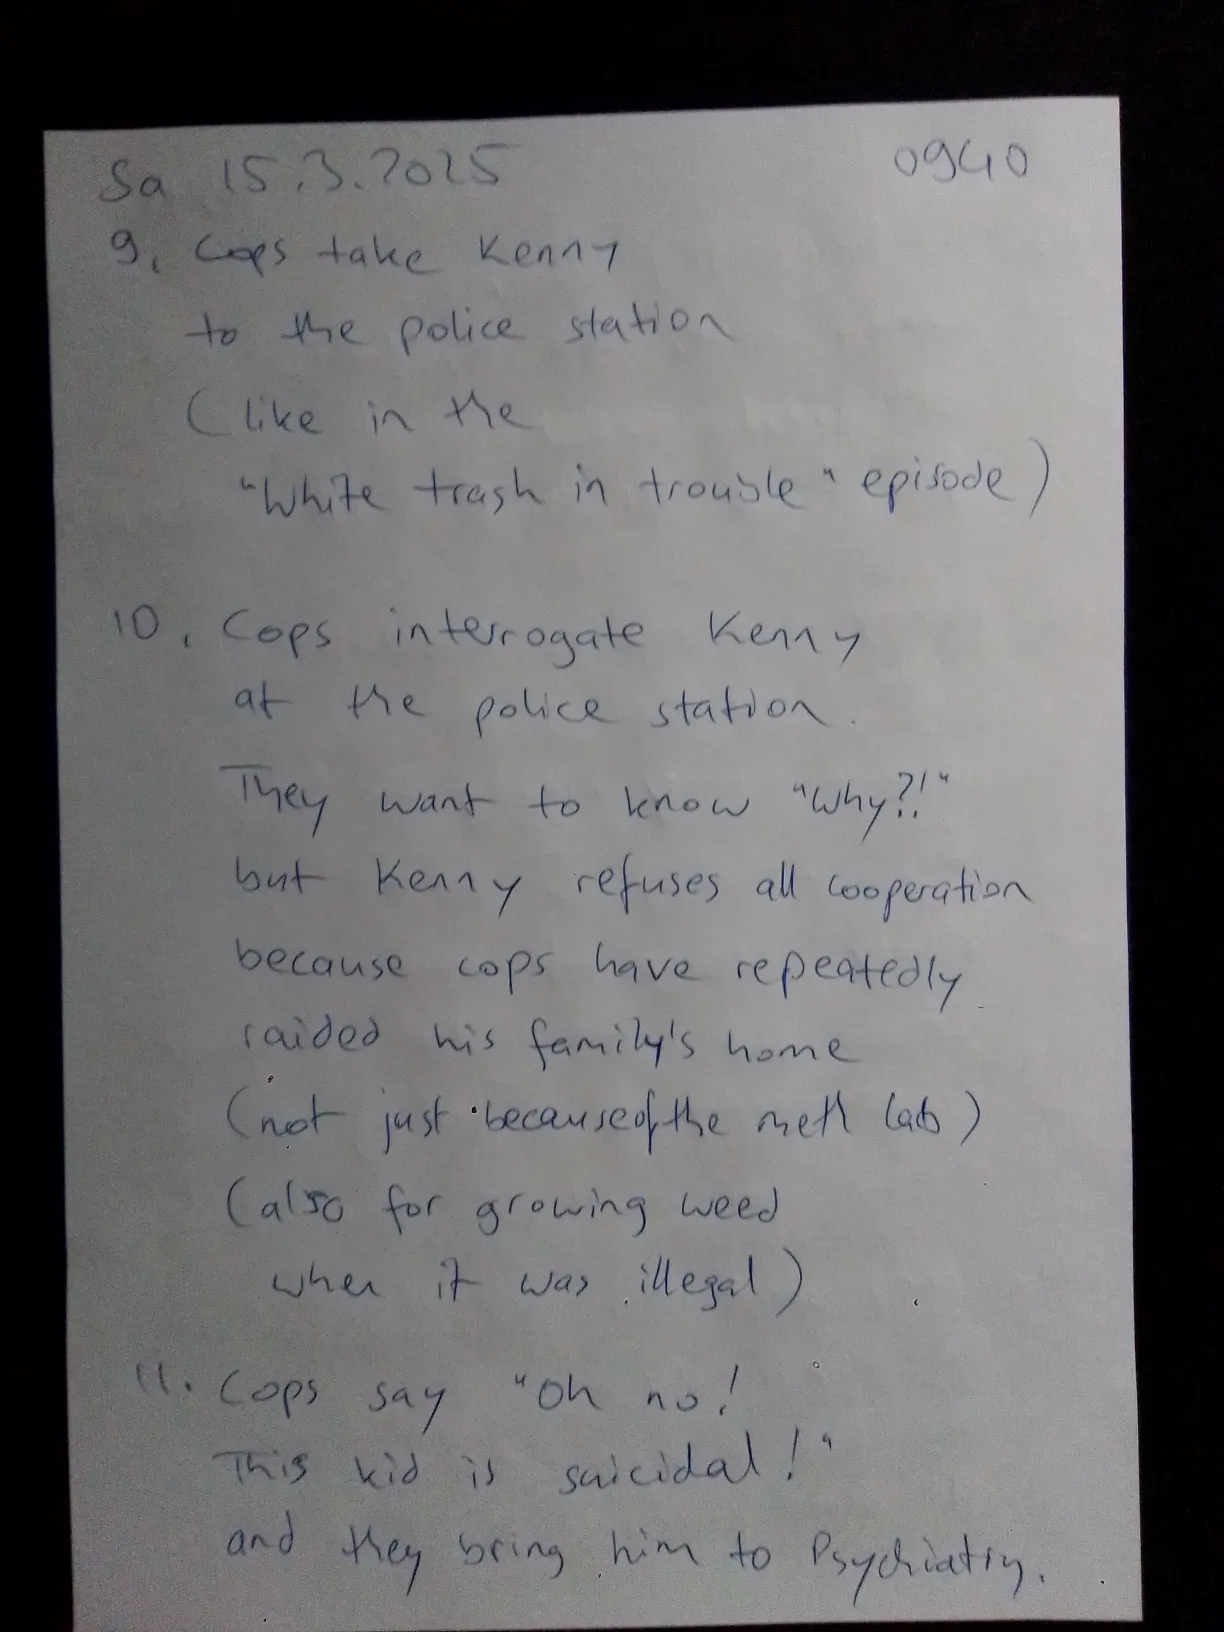 Sa 15.3.2025 0940
9. Cops take Kenny
to the police station
(like in the
"White trash in trouble" episode)
10. Cops interrogate Kenny
at the police station.
They want to know "Why?!"
but Kenny refuses all cooperation
because cops have repeatedly
raided his family's home
(not just because of the meth lab)
(also for growing weed
when it was illegal)
11. Cops say "Oh no!
This kid is suicidal!"
and they bring him to Psychiatry.